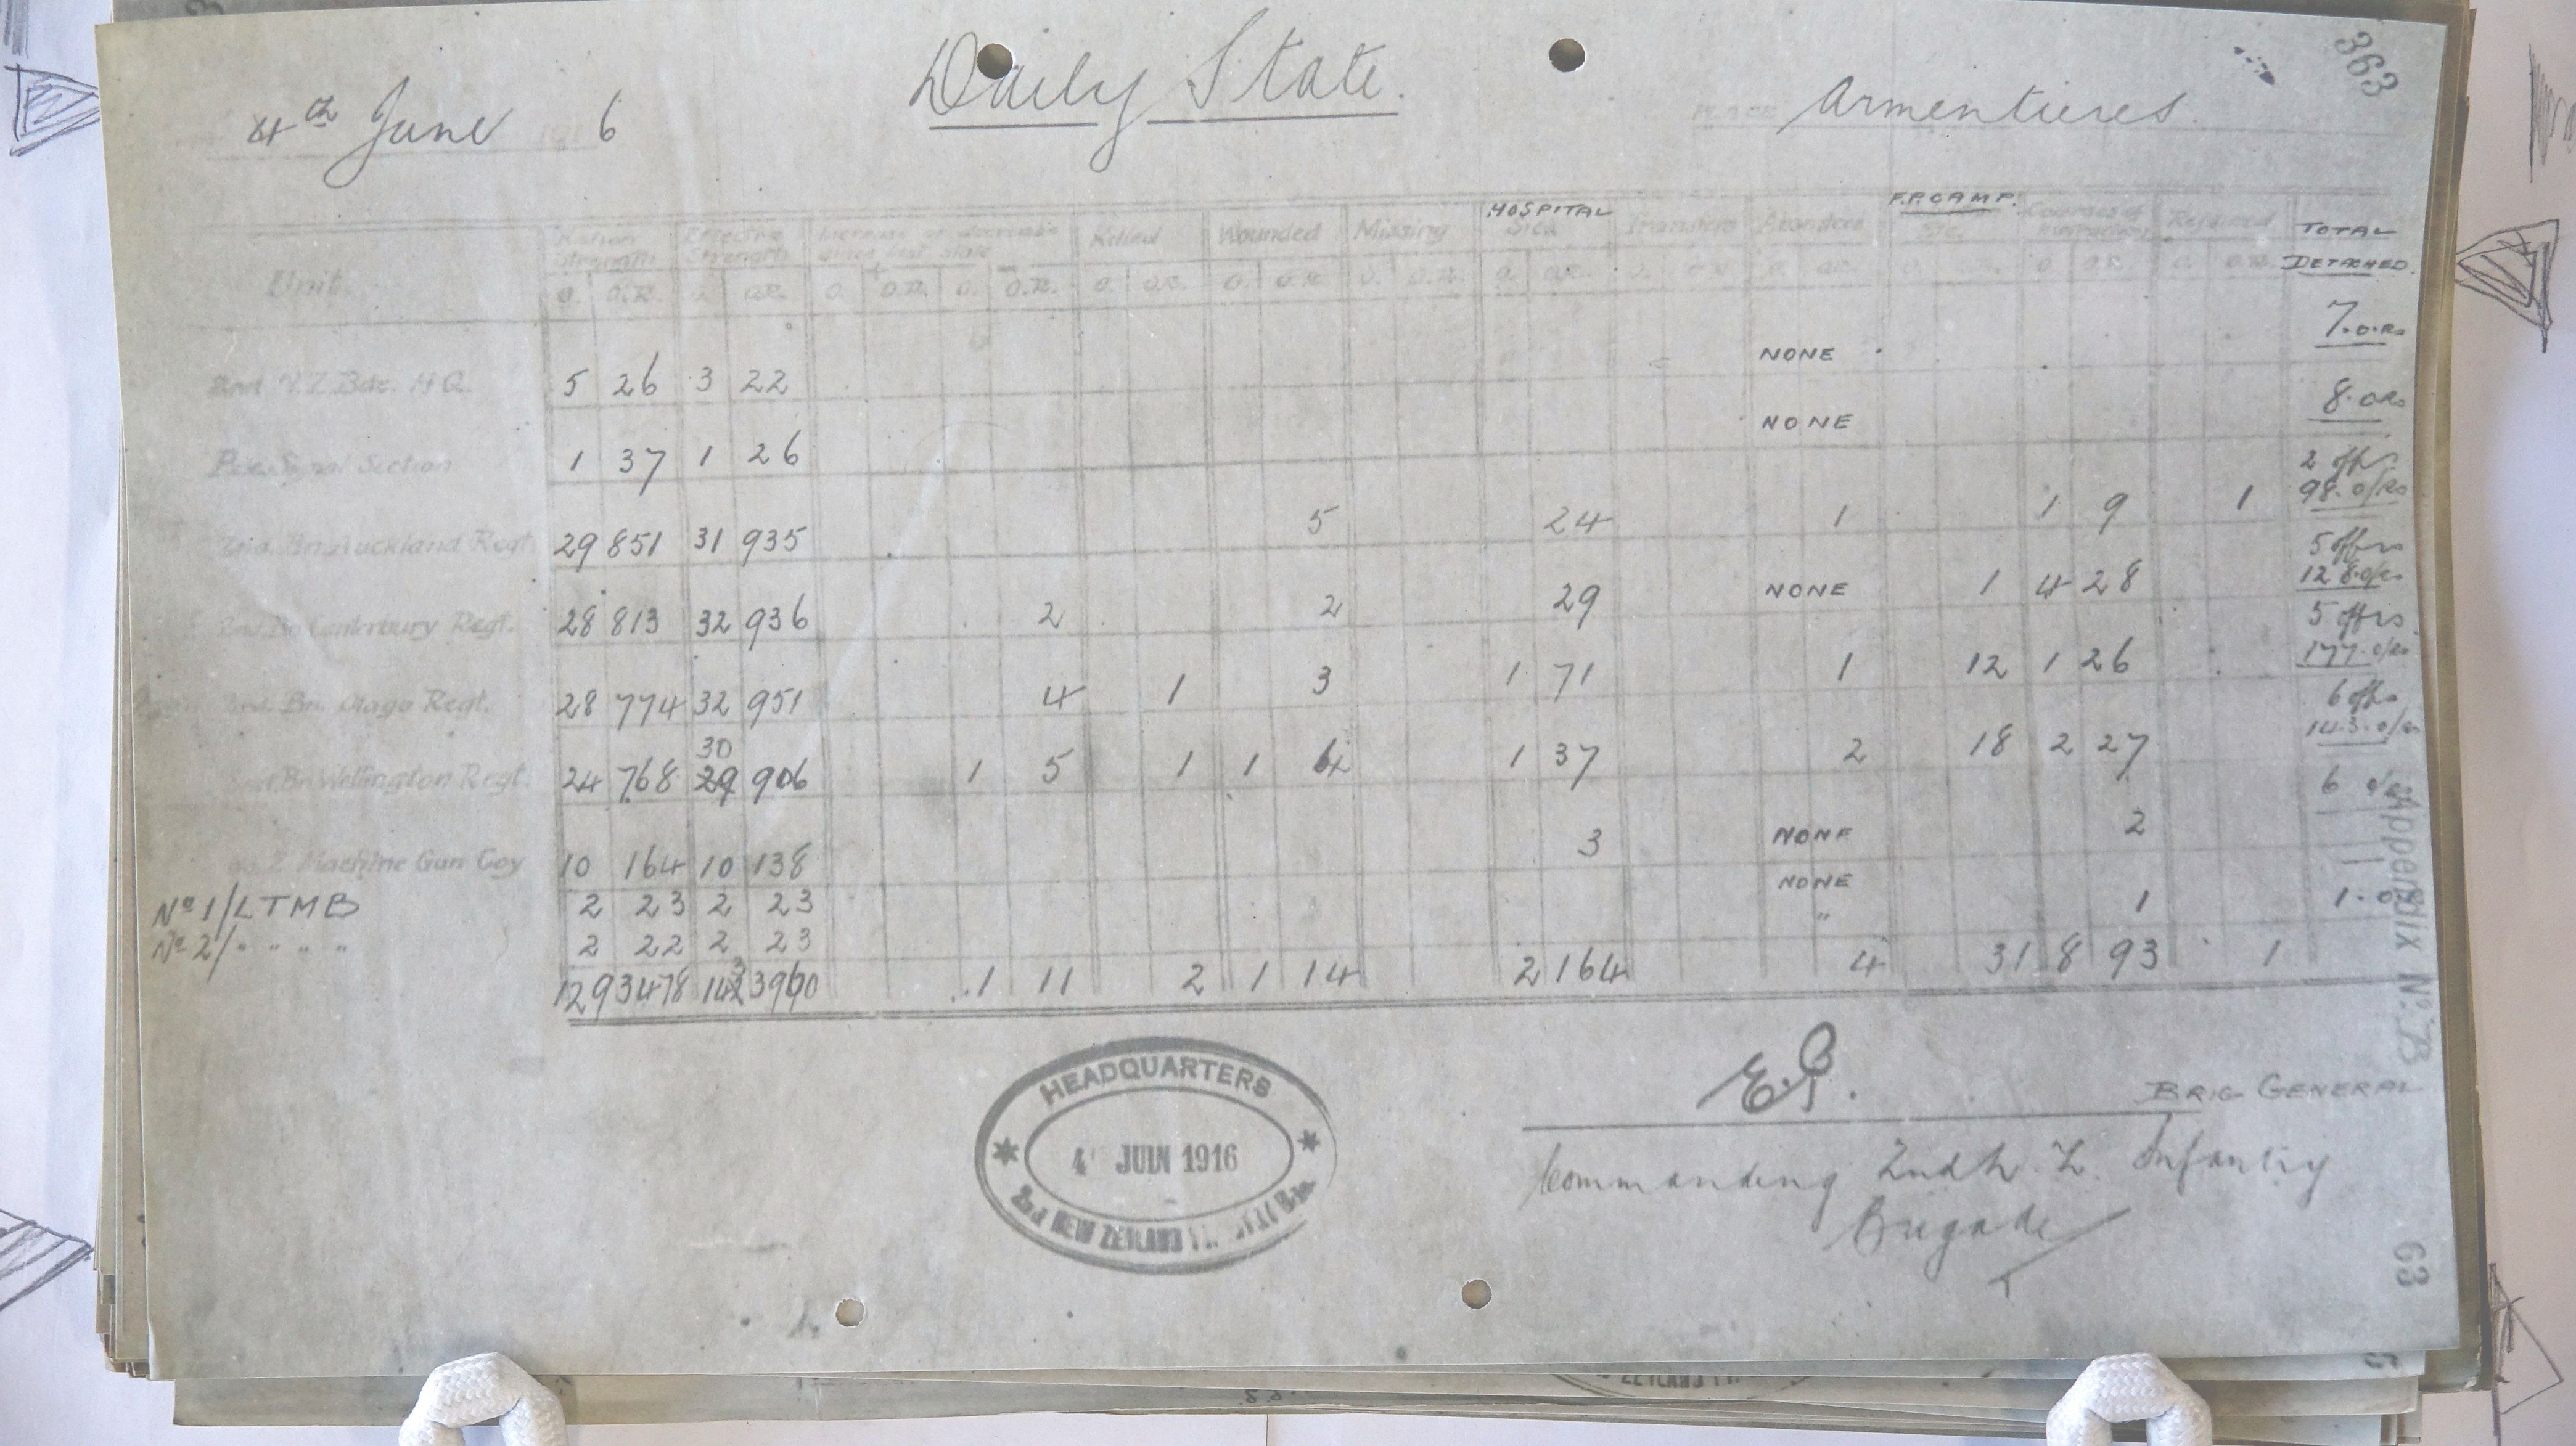 363
Daily State.
4th June 1916
Armentieres.
Unit.
Ration Strength
Effective Strength
Increase or decrease since last state
+ -
Killed
Wounded
Missing
HOSPITAL
Sick
Transfers
Absentees
F.P. CAMP.
Etc.
Courses of Instruction
Rejoined
TOTAL DETACHED.
O. O.R. O. O.R. O. O.R. O. O.R. O. O.R. O. O.R. O. O.R. O. O.R.
2nd N.Z. Bde. H Q. 5 26 3 22 NONE 7.O.Rs
Bde. Signal Section 1 37 1 26 NONE 8.ORs
2nd. Bn. Auckland Regt. 29 851 31 935 5 24 1 1 9 1 2 offrs 98.O/Rs
2nd. Bn. Canterbury Regt. 28 813 32 936 2 2 29 NONE 1 4 28 5 offrs 128.O/Rs
2nd. Bn. Otago Regt. 28 774 32 951 4 1 3 1 71 1 12 1 26 5 offrs 177.O/Rs
2nd. Bn. Wellington Regt. 24 768 30 29 906 1 5 1 1 4 1 37 2 18 2 27 6 offrs 143.O/Rs
No. 2 Machine Gun Coy 10 164 10 138 3 NONE 2 6
No 1/ LTMB 2 23 2 23 NONE
No 2/ " " " " 2 22 2 23 " 1 1.
129 3478 143 3960 1 11 2 1 14 2 164 4 31 8 93 1
HEADQUARTERS
4 JUIN 1916
2nd NEW ZEALAND
BRIG GENERAL
Commanding 2nd N. Z. Infantry
Brigade
Appendix No. B
63